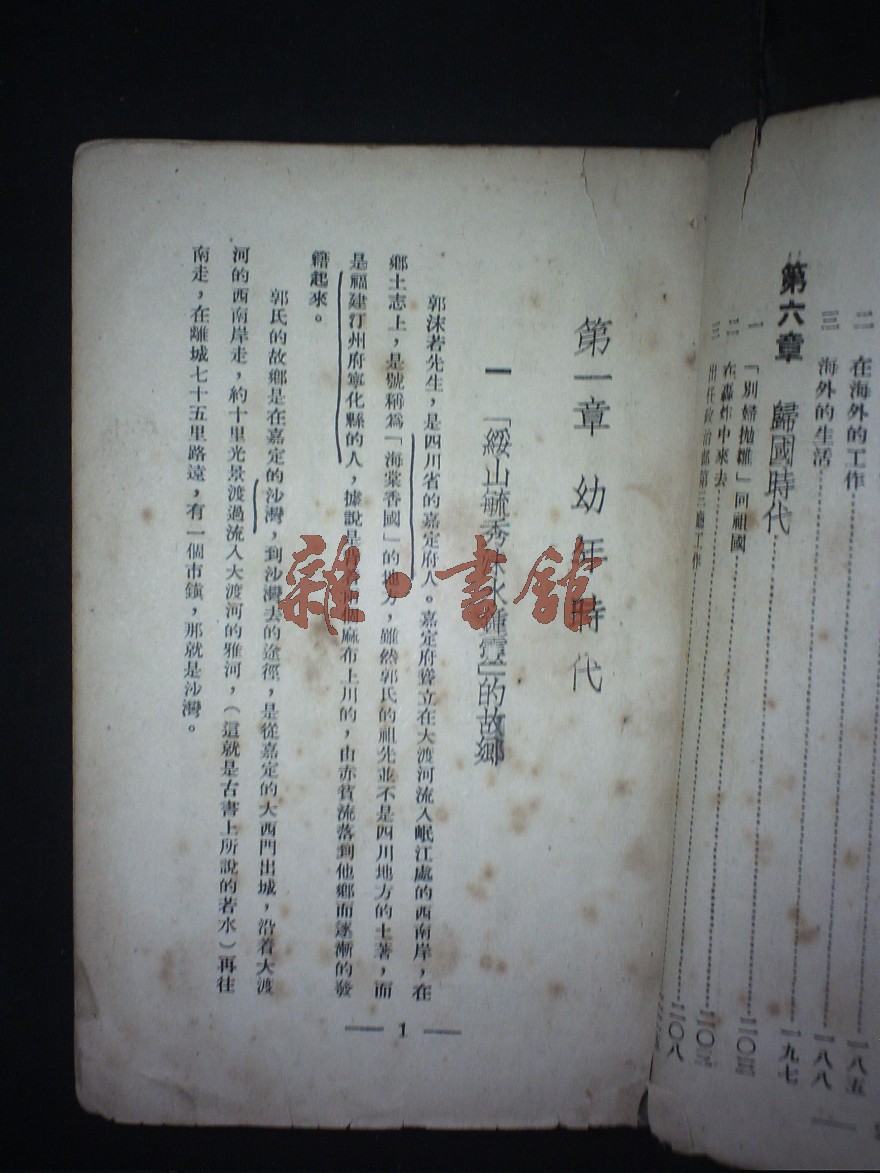 二 在海外的工作……一八五
三 海外的生活……一八八
第六章 歸國時代……一九七
一 「別婦拋雛」回祖國……二〇三
二 在轟炸中來去……二〇
三 出任政治部第三廳工作……二〇八
第一章 幼年時代
一 「綏山毓秀沫水鍾靈」的故鄉
郭沫若先生，是四川省的嘉定府人。嘉定府聳立在大渡河流入岷江處的西南岸，在
鄉土志上，是號稱爲「海棠香國」的地方，雖然郭氏的祖先並不是四川地方的土著，而
是福建汀州府寧化縣的人，據說是麻布上川的，由赤貧流落到他鄉而逐漸的發
籍起來。
郭氏的故鄉是在嘉定的沙灣，到沙灣去的途徑，是從嘉定的大西門出城，沿着大渡
河的西南岸走，約十里光景渡過流入大渡河的雅河，（這就是古書上所說的若水）再往
南走，在離城七十五里路遠，有一個市鎮，那就是沙灣。
1
雜·書館